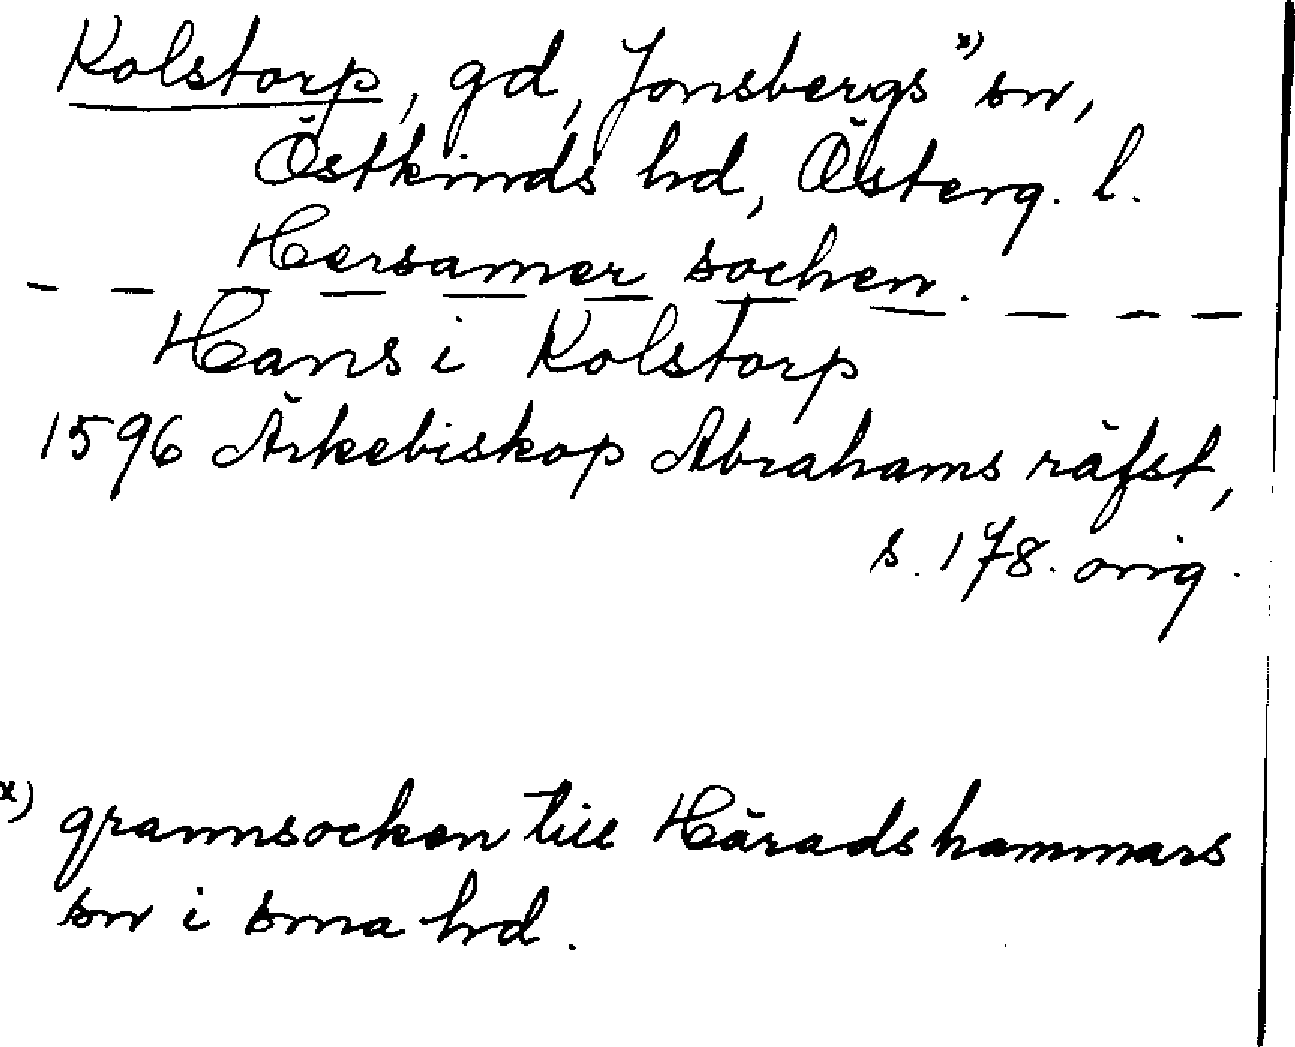 Kolstorp, gd, Jonsbergs x) sn,
Östkinds hd, Österg. l.
Hersamer sochen.
Hans i Kolstorp
1596 Ärkebiskop Abrahams räfst,
s. 178. orig.
x) grannsocken till Häradshammars
sn i sma hd.